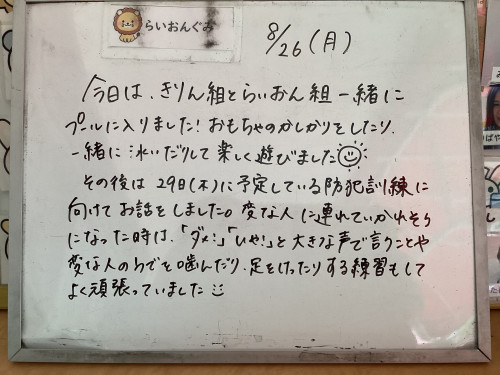 らいおんぐみ
8/26(月)
今日は、きりん組とらいおん組一緒に
プールに入りました!おもちゃのかしかりをしたり、
一緒に泳いだりして楽しく遊びました
その後は29日(木)に予定している防犯訓練に
向けてお話をしました。変な人に連れていかれそう
になった時は、「ダメ!」「いや!」と大きな声で言うことや
変な人のうでを噛んだり、足をけったりする練習もして
よく頑張っていました